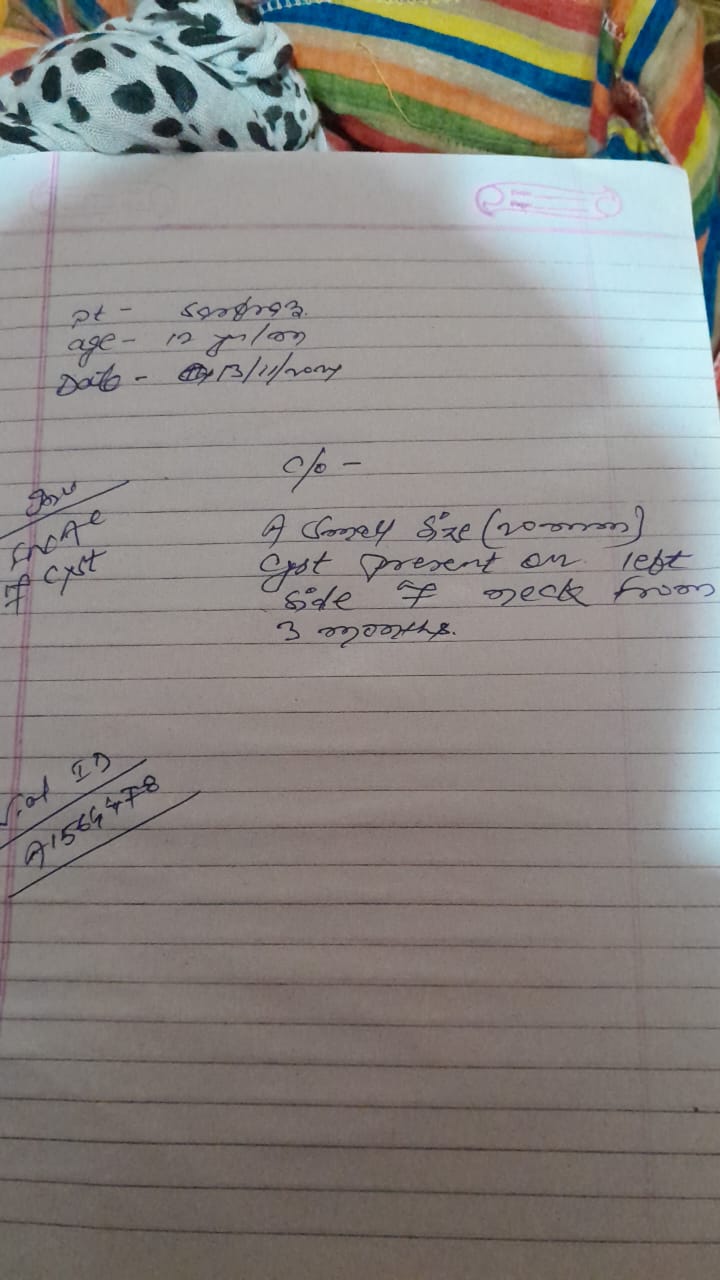 pt - Sarfraz.
age - 12 yr/m
Date - 13/11/2024
c/o -
A small size (20mm)
cyst present on left
side of neck from
3 months.
Adv
FNAC
of cyst
Vial ID
A1564478